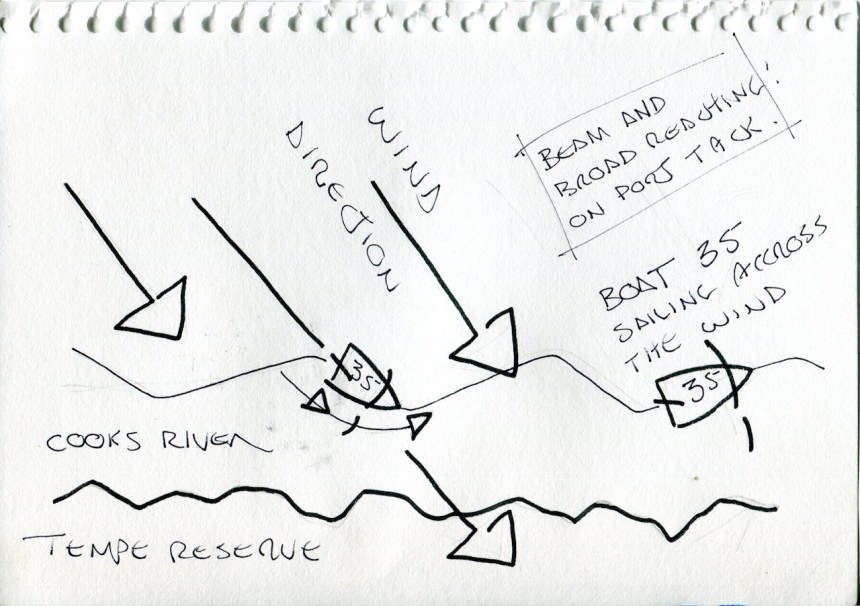 WIND
DIRECTION
BEAM AND
BROAD REACHING!
ON PORT TACK.
BOAT 35
SAILING ACCROSS
THE WIND
35
35
COOKS RIVER
TEMPE RESERVE